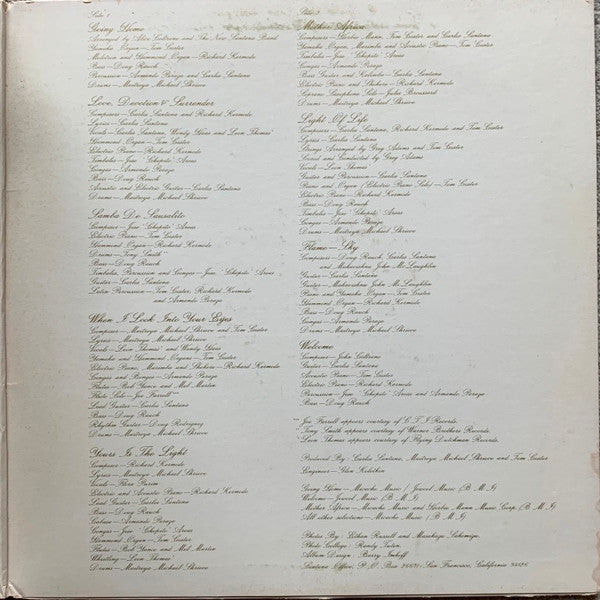 Side 1
Going Home
Arranged by Alice Coltrane and The New Santana Band
Yamaha Organ—Tom Coster
Mellotron and Hammond Organ—Richard Kermode
Bass—Doug Rauch
Percussion—Armando Peraza and Carlos Santana
Drums—Maitreya Michael Shrieve
Love, Devotion & Surrender
Composers—Carlos Santana and Richard Kermode
Lyrics—Carlos Santana
Vocals—Carlos Santana, Wendy Haas and Leon Thomas
Hammond Organ—Tom Coster
Electric Piano—Richard Kermode
Timbales—Jose 'Chepito' Areas
Congas—Armando Peraza
Bass—Doug Rauch
Acoustic and Electric Guitar—Carlos Santana
Drums—Maitreya Michael Shrieve
Samba De Sausalito
Composer—Jose 'Chepito' Areas
Electric Piano—Tom Coster
Hammond Organ—Richard Kermode
Drums—Tony Smith
Bass—Doug Rauch
Timbales, Percussion and Congas—Jose 'Chepito' Areas
Guitar—Carlos Santana
Latin Percussion—Tom Coster, Richard Kermode
and Armando Peraza
When I Look Into Your Eyes
Composers—Maitreya Michael Shrieve and Tom Coster
Lyrics—Maitreya Michael Shrieve
Vocals—Leon Thomas and Wendy Haas
Yamaha and Hammond Organs—Tom Coster
Electric Piano, Marimba and Shekere—Richard Kermode
Congas and Bongos—Armando Peraza
Flutes—Bob Yance and Mel Martin
Flute Solo—Joe Farrell
Lead Guitar—Carlos Santana
Bass—Doug Rauch
Rhythm Guitar—Doug Rodriguez
Drums—Maitreya Michael Shrieve
Yours Is The Light
Composer—Richard Kermode
Lyrics—Maitreya Michael Shrieve
Vocals—Flora Purim
Electric and Acoustic Piano—Richard Kermode
Lead Guitar—Carlos Santana
Bass—Doug Rauch
Cabasa—Armando Peraza
Congas—Jose 'Chepito' Areas
Hammond Organ—Tom Coster
Flutes—Bob Yance and Mel Martin
Whistling—Leon Thomas
Drums—Maitreya Michael Shrieve
Side 2
Mother Africa
Composers—Herbie Mann, Tom Coster and Carlos Santana
Yamaha Organ, Marimba and Acoustic Piano—Tom Coster
Timbales—Jose 'Chepito' Areas
Congas—Armando Peraza
Bass Guitar and Kalimba—Carlos Santana
Electric Piano and Shekere—Richard Kermode
Soprano Saxophone Solo—Jules Broussard
Drums—Maitreya Michael Shrieve
Light Of Life
Composers—Carlos Santana, Richard Kermode and Tom Coster
Lyrics—Carlos Santana
Strings Arranged by Greg Adams and Tom Coster
Voiced and Conducted by Greg Adams
Vocals—Leon Thomas
Guitar and Percussion—Carlos Santana
Piano and Organ (Electric Piano Solo)—Tom Coster
Electric Piano—Richard Kermode
Bass—Doug Rauch
Timbales—Jose 'Chepito' Areas
Congas—Armando Peraza
Drums—Maitreya Michael Shrieve
Flame—Sky
Composers—Doug Rauch, Carlos Santana
and Mahavishnu John McLaughlin
Guitar—Carlos Santana
Guitar—Mahavishnu John McLaughlin
Piano and Yamaha Organ—Tom Coster
Hammond Organ—Richard Kermode
Bass—Doug Rauch
Congas—Armando Peraza
Drums—Maitreya Michael Shrieve
Welcome
Composer—John Coltrane
Guitar—Carlos Santana
Acoustic Piano—Tom Coster
Electric Piano—Richard Kermode
Percussion—Jose 'Chepito' Areas and Armando Peraza
Bass—Doug Rauch
Joe Farrell appears courtesy of C T I Records.
Tony Smith appears courtesy of Warner Brothers Records.
Leon Thomas appears courtesy of Flying Dutchman Records.
Produced By Carlos Santana, Maitreya Michael Shrieve and Tom Coster
Engineer—Glen Kolotkin
Going Home—Micocha Music / Jowcol Music (B. M. I)
Welcome—Jowcol Music (B. M. I)
Mother Africa—Micocha Music and Herbie Mann Music Corp. (B. M. I)
All other selections—Micocha Music (B. M. I)
Photos By: Ethan Russell and Masahiro Sukemiza
Photo Collage: Randy Tuten
Album Design: Barry Imhoff
Santana Office, P.O. Box 26671, San Francisco, California 94126